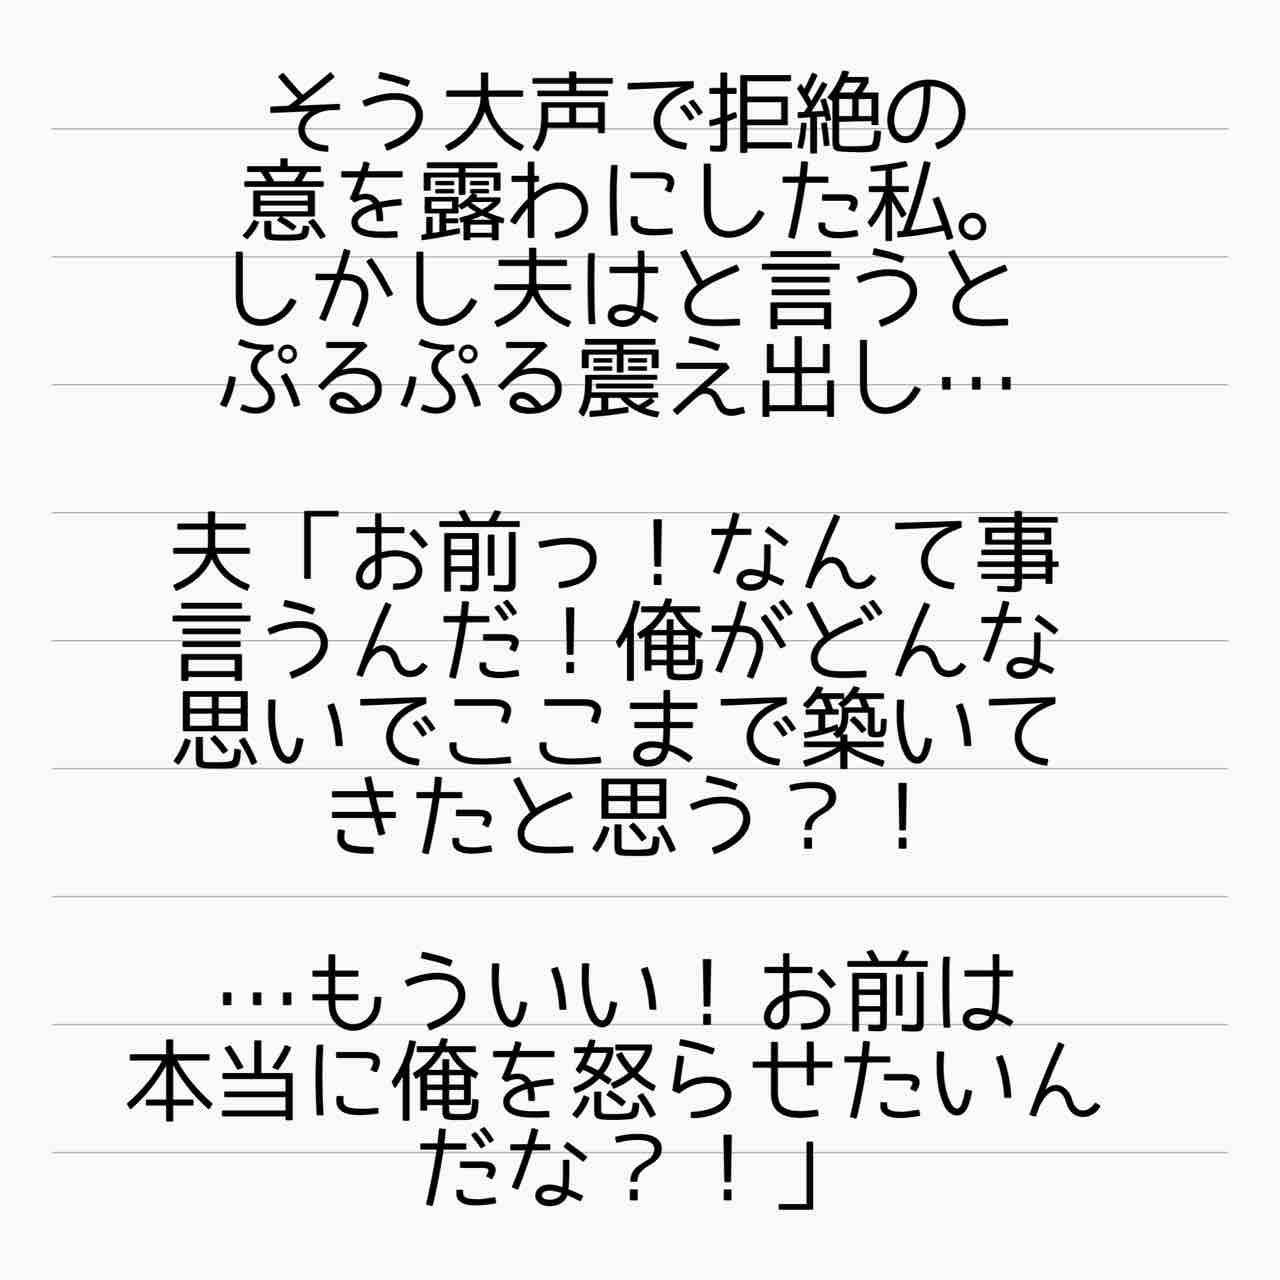 そう大声で拒絶の
意を露わにした私。
しかし夫はと言うと
ぷるぷる震え出し…
夫「お前っ！なんて事
言うんだ！俺がどんな
思いでここまで築いて
きたと思う？！
…もういい！お前は
本当に俺を怒らせたいん
だな？！」